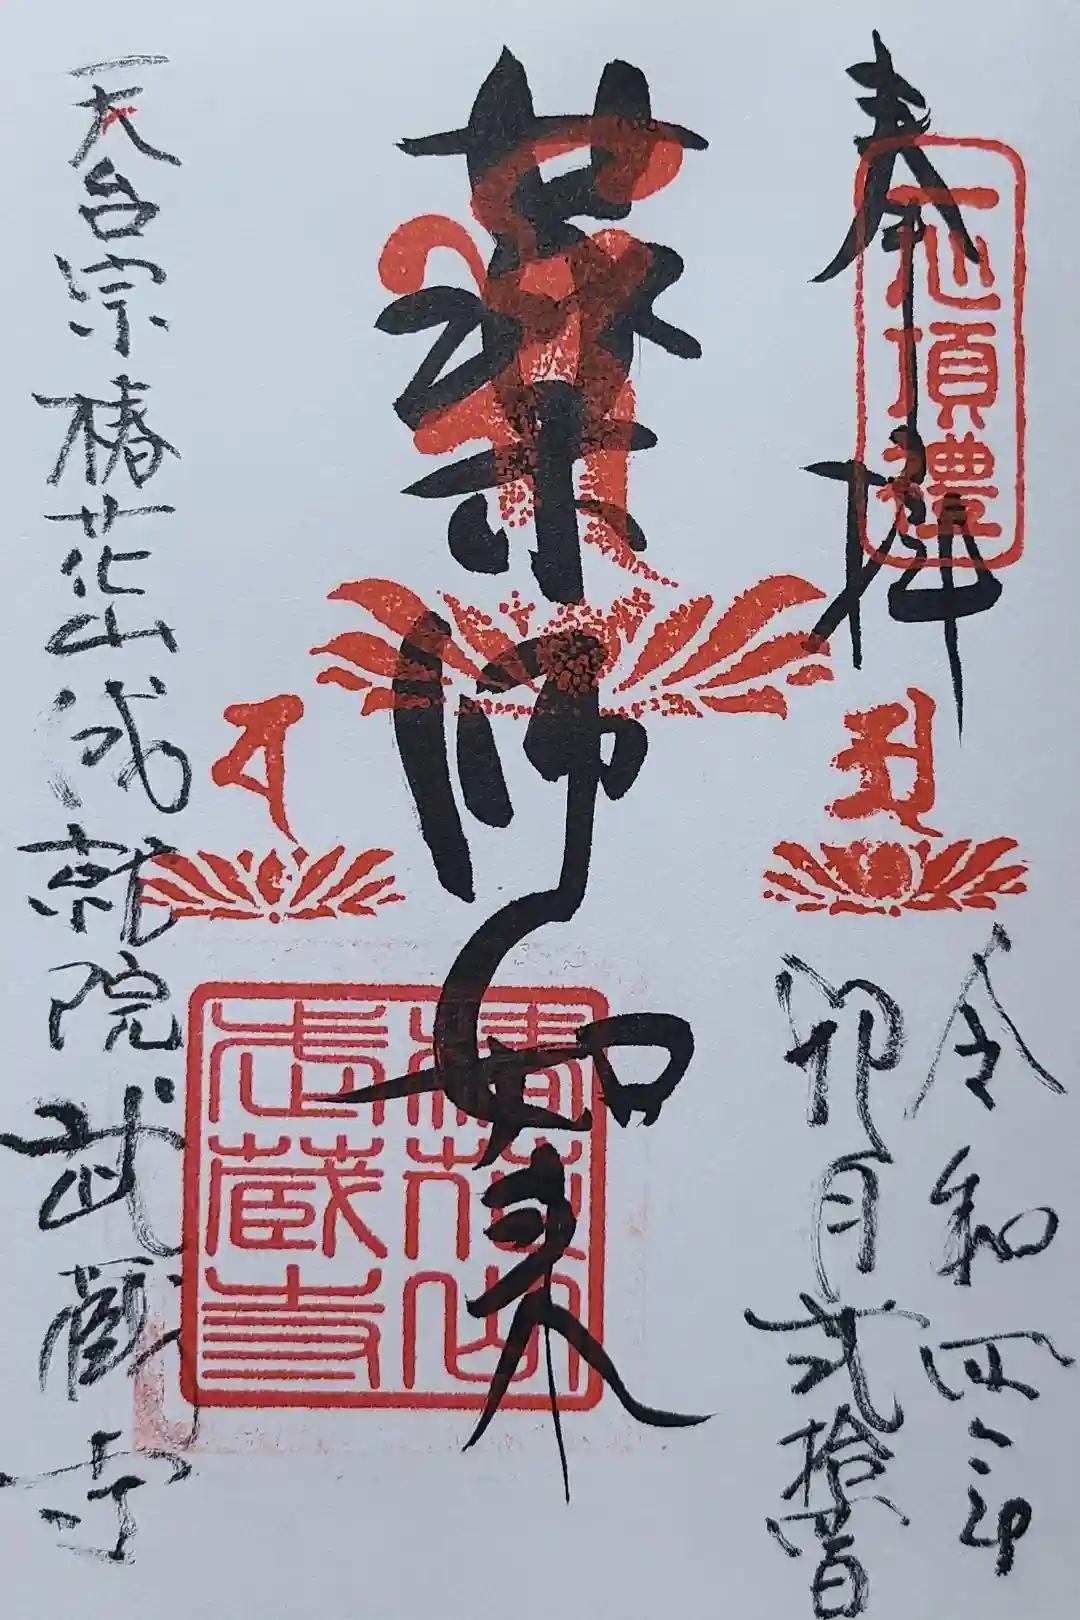 奉拝
一心頂禮
令和四
卯月弐拾
薬師如来
椿花山
武蔵寺
天台宗椿花山成就院武蔵寺